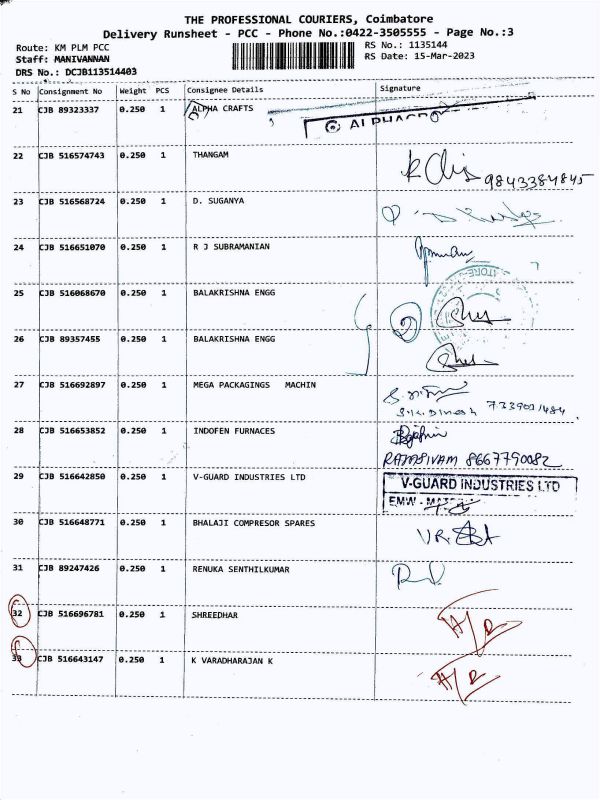 THE PROFESSIONAL COURIERS, Coimbatore
Delivery Runsheet - PCC - Phone No.:0422-3505555 - Page No.:3
Route: KM PLM PCC
RS No.: 1135144
Staff: MANIVANNAN
RS Date: 15-Mar-2023
DRS No.: DCJB113514403
S No Consignment No Weight PCS Consignee Details Signature
21 CJB 89323337 0.250 1 ALPHA CRAFTS
22 CJB 516574743 0.250 1 THANGAM
9843384845
23 CJB 516568724 0.250 1 D. SUGANYA
24 CJB 516651070 0.250 1 R J SUBRAMANIAN
25 CJB 516068670 0.250 1 BALAKRISHNA ENGG
26 CJB 89357455 0.250 1 BALAKRISHNA ENGG
27 CJB 516692897 0.250 1 MEGA PACKAGINGS MACHIN
7339001484
28 CJB 516653852 0.250 1 INDOFEN FURNACES
8667790082
29 CJB 516642850 0.250 1 V-GUARD INDUSTRIES LTD
V-GUARD INDUSTRIES LTD
30 CJB 516648771 0.250 1 BHALAJI COMPRESOR SPARES
31 CJB 89247426 0.250 1 RENUKA SENTHILKUMAR
32 CJB 516696781 0.250 1 SHREEDHAR
33 CJB 516643147 0.250 1 K VARADHARAJAN K